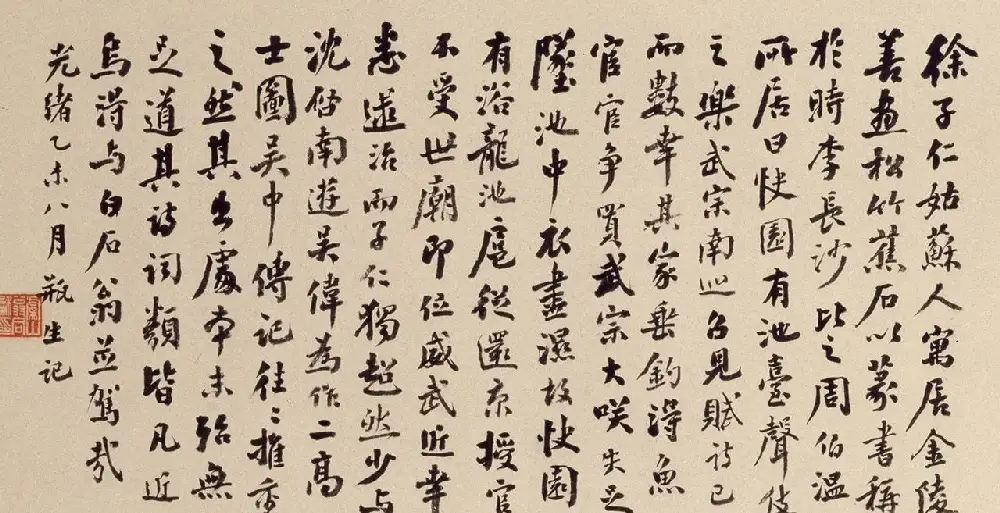 徐子仁姑蘇人寓居金陵
善畫松竹蕉石以篆書稱
於時李長沙比之周伯温
所居曰快園有池臺聲伎
之樂武宗南巡召見賦詩已
而數幸其家垂釣得魚
宦官争買武宗大咲失足
墜池中衣盡濕故快園
有浴龍池扈從還京授官
不受世廟即位威武近幸
悉逮治而子仁獨超然少与
沈啟南遊吳偉為作二高
士圖吳中傳記往〻推
之然其出處本末殆無
足道其詩詞類皆凡近
烏得与白石翁並駕哉
光緒乙未八月瓶生記